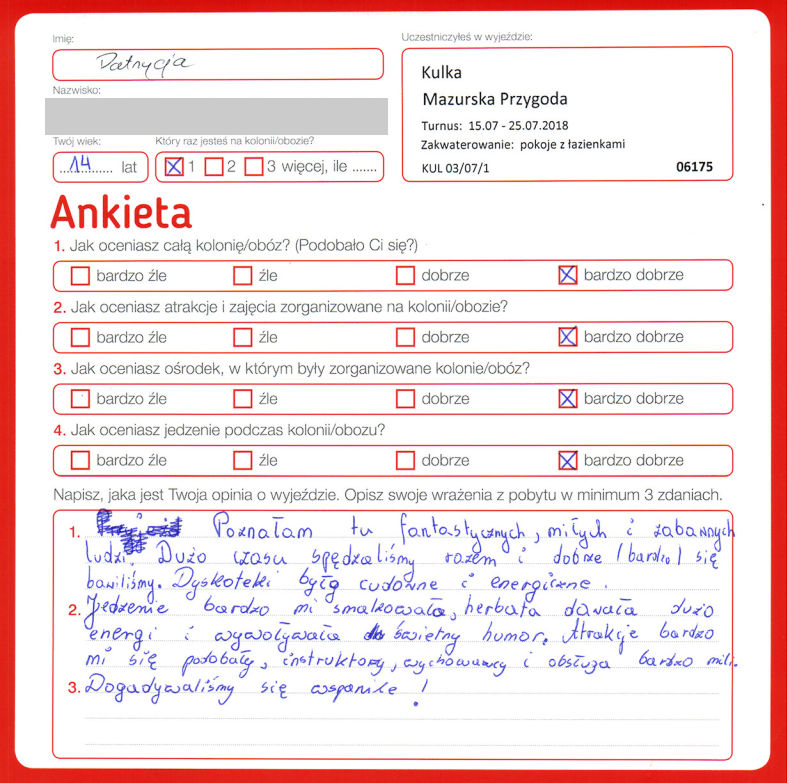 Imię:
Patrycja
Nazwisko:
Twój wiek:
Który raz jesteś na kolonii/obozie?
14 lat
1 2 3 więcej, ile .......
Uczestniczyłeś w wyjeździe:
Kulka
Mazurska Przygoda
Turnus: 15.07 - 25.07.2018
Zakwaterowanie: pokoje z łazienkami
KUL 03/07/1 06175
Ankieta
1. Jak oceniasz całą kolonię/obóz? (Podobało Ci się?)
bardzo źle źle dobrze bardzo dobrze
2. Jak oceniasz atrakcje i zajęcia zorganizowane na kolonii/obozie?
bardzo źle źle dobrze bardzo dobrze
3. Jak oceniasz ośrodek, w którym były zorganizowane kolonie/obóz?
bardzo źle źle dobrze bardzo dobrze
4. Jak oceniasz jedzenie podczas kolonii/obozu?
bardzo źle źle dobrze bardzo dobrze
Napisz, jaka jest Twoja opinia o wyjeździe. Opisz swoje wrażenia z pobytu w minimum 3 zdaniach.
1. Poznałam tu fantastycznych, miłych i zabawnych
ludzi. Dużo czasu spędzaliśmy razem i dobrze (bardzo) się
bawiliśmy. Dyskoteki były cudowne i energiczne.
2. Jedzenie bardzo mi smakowało, herbata dawała dużo
energi i wywoływała świetny humor. Atrakcje bardzo
mi się podobały, instruktorzy, wychowawcy i obsługa bardzo mili.
3. Dogadywaliśmy się wspaniale !